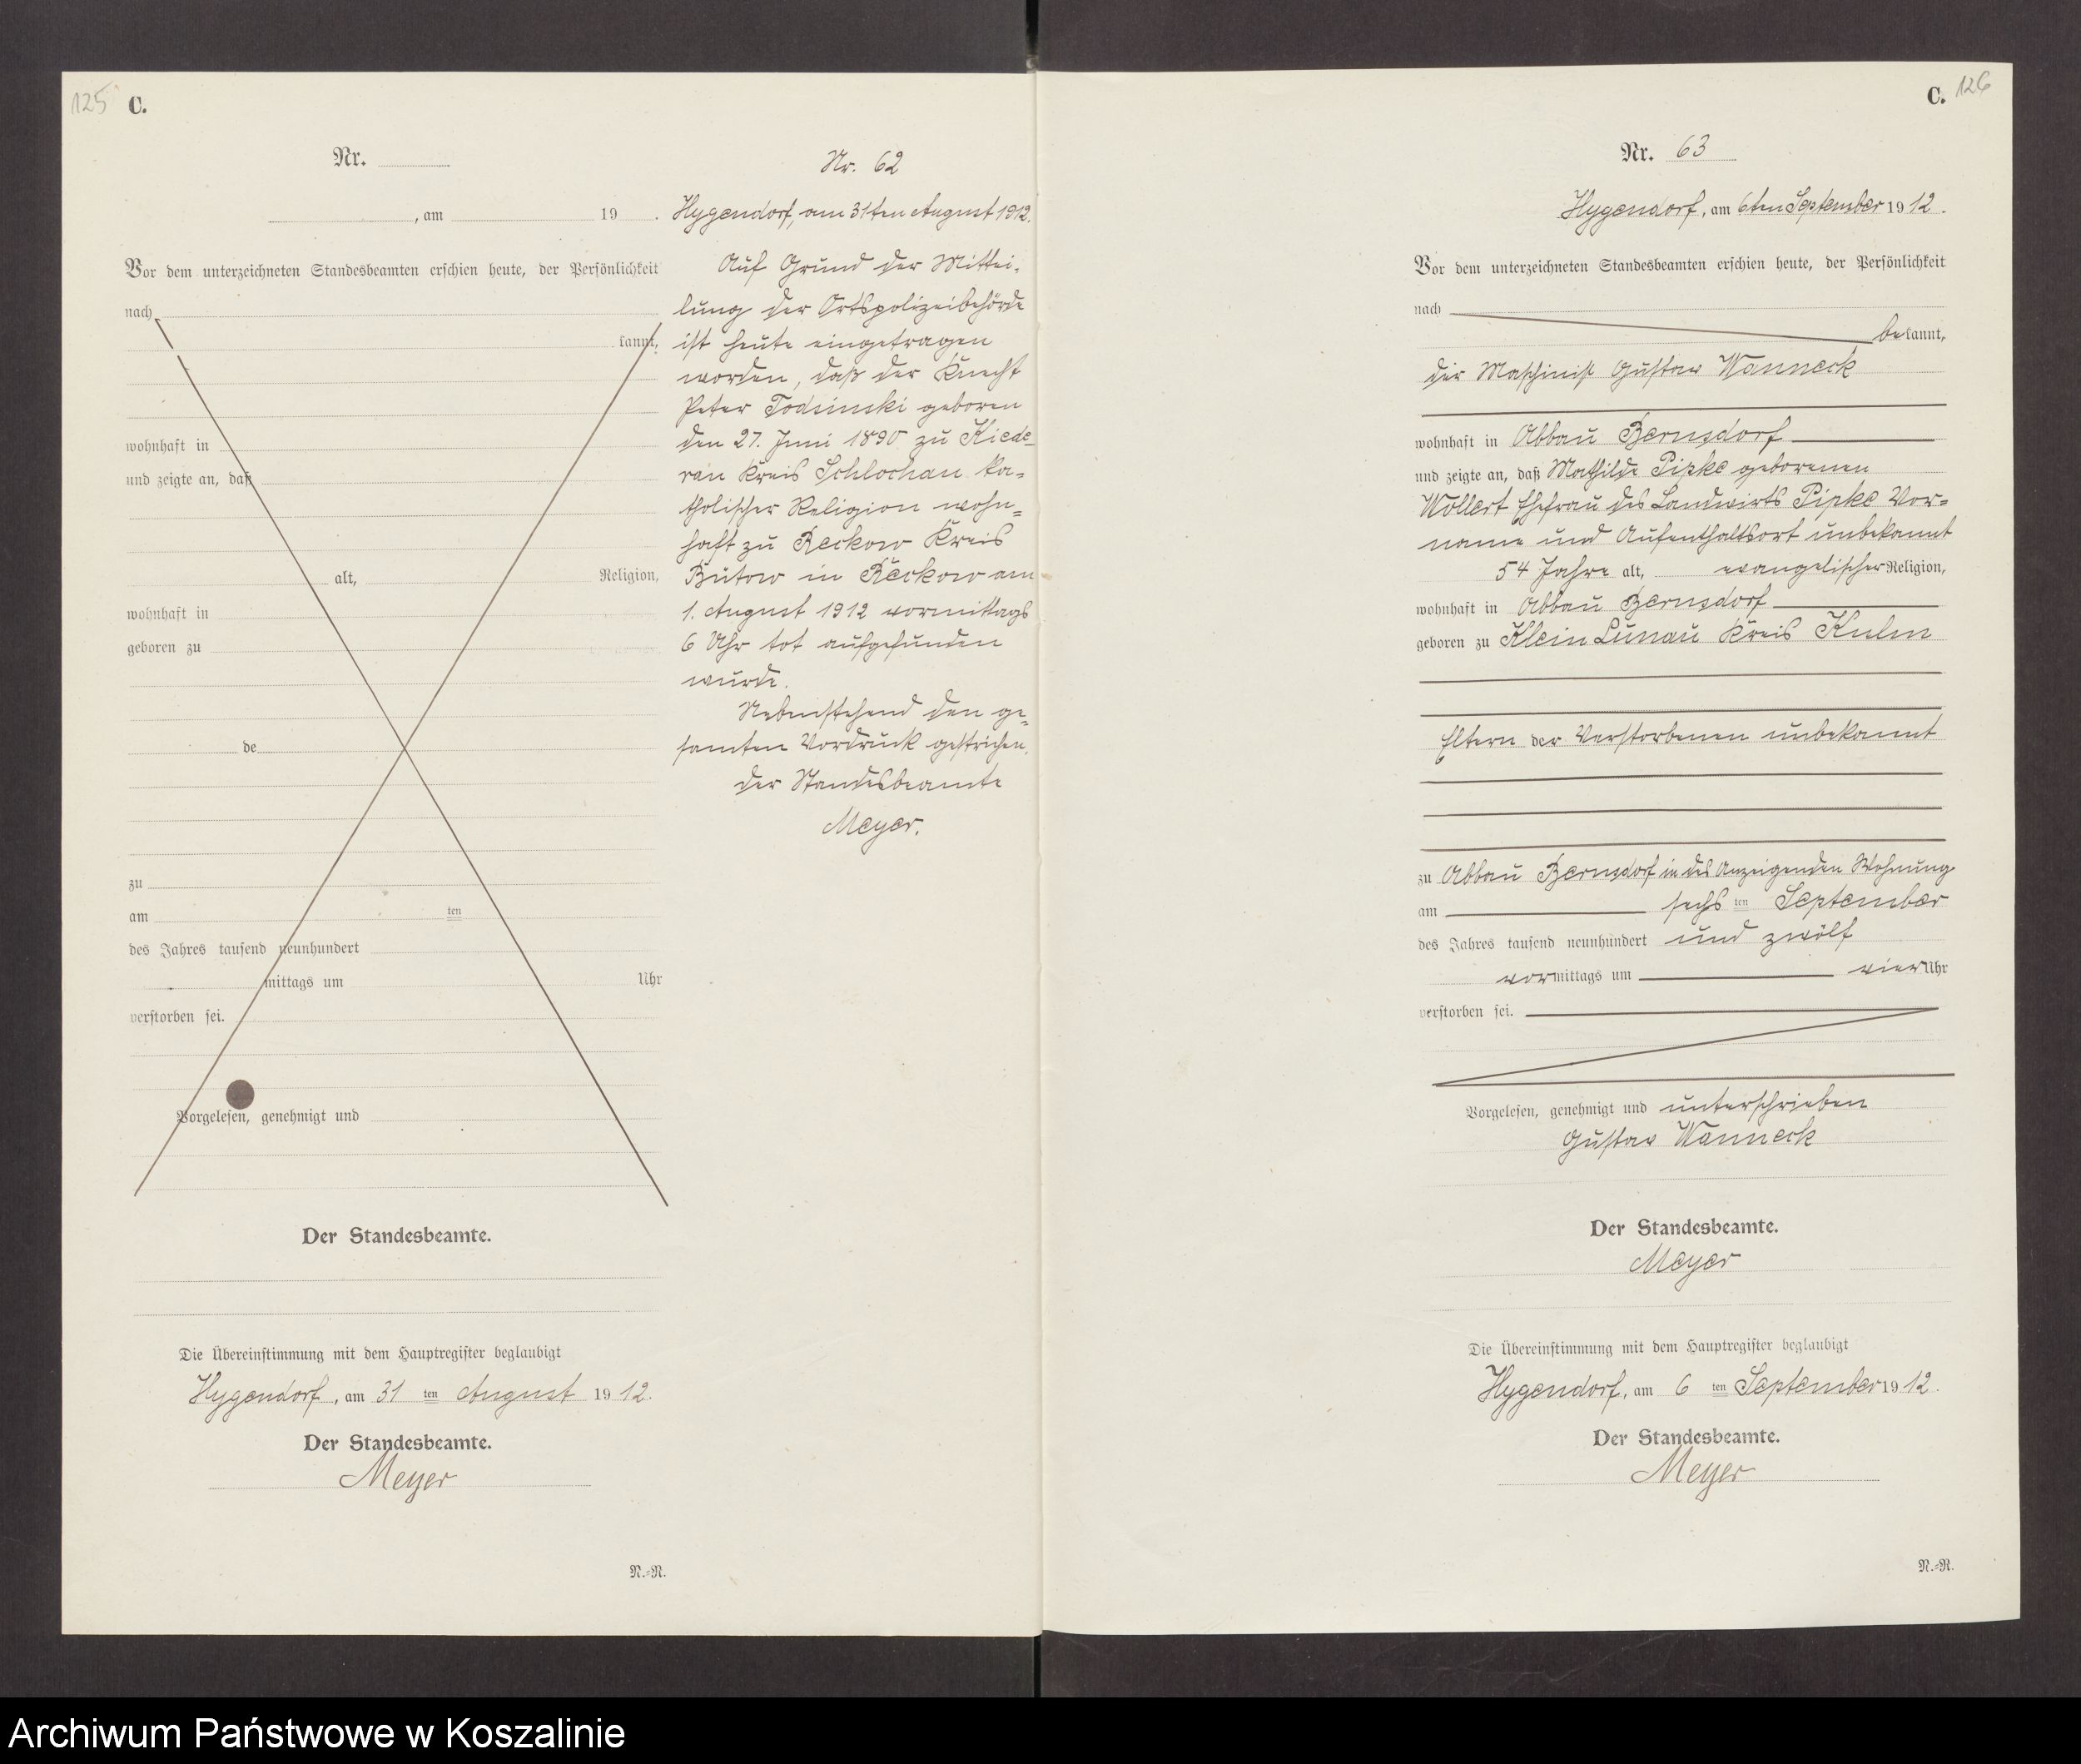 125 C.
Nr.
, am 19 .
Vor dem unterzeichneten Standesbeamten erschien heute, der Persönlichkeit
nach
kannt,
wohnhaft in
und zeigte an, daß
alt, Religion,
wohnhaft in
geboren zu
de
zu
am ten
des Jahres tausend neunhundert
mittags um Uhr
verstorben sei.
Vorgelesen, genehmigt und
Der Standesbeamte.
Die Übereinstimmung mit dem Hauptregister beglaubigt
Hygendorf, am 31 ten August 1912.
Der Standesbeamte.
Meyer
N.-N.
Nr. 62
Hygendorf, am 31ten August 1912.
Auf Grund der Mittei-
lung der Ortspolizeibehörde
ist heute eingetragen
worden, daß der Knecht
Peter Todsinski geboren
den 27. Juni 1890 zu Kiede-
ran Kreis Schlochau ka-
tholischer Religion wohn-
haft zu Reckow Kreis
Bütow in Reckow am
1. August 1912 vormittags
6 Uhr tot aufgefunden
wurde.
Nebenstehend den ge-
samten Vordruck gestrichen.
der Standesbeamte
Meyer.
C. 126
Nr. 63
Hygendorf, am 6ten September 1912.
Vor dem unterzeichneten Standesbeamten erschien heute, der Persönlichkeit
nach
bekannt,
der Maschinist Gustav Wanneck
wohnhaft in Abbau Bernsdorf
und zeigte an, daß Mathilde Pipke geborenen
Wollert Ehefrau des Landwirts Pipke Vor-
name und Aufenthaltsort unbekannt
54 Jahre alt, evangelischer Religion,
wohnhaft in Abbau Bernsdorf
geboren zu Klein Lunau Kreis Kulm
Eltern der Verstorbenen unbekannt
zu Abbau Bernsdorf in des Anzeigenden Wohnung
am sechsten September
des Jahres tausend neunhundert und zwölf
vormittags um vier Uhr
verstorben sei.
Vorgelesen, genehmigt und unterschrieben
Gustav Wanneck
Der Standesbeamte.
Meyer
Die Übereinstimmung mit dem Hauptregister beglaubigt
Hygendorf, am 6 ten September 1912.
Der Standesbeamte.
Meyer
N.-N.
Archiwum Państwowe w Koszalinie